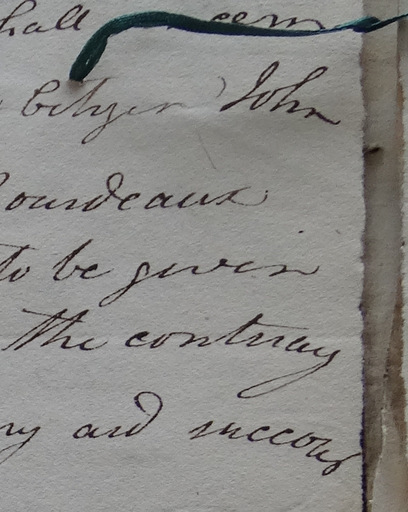 hall
Citizen John
ourdeaux
to be given
the contray
ny aid succour